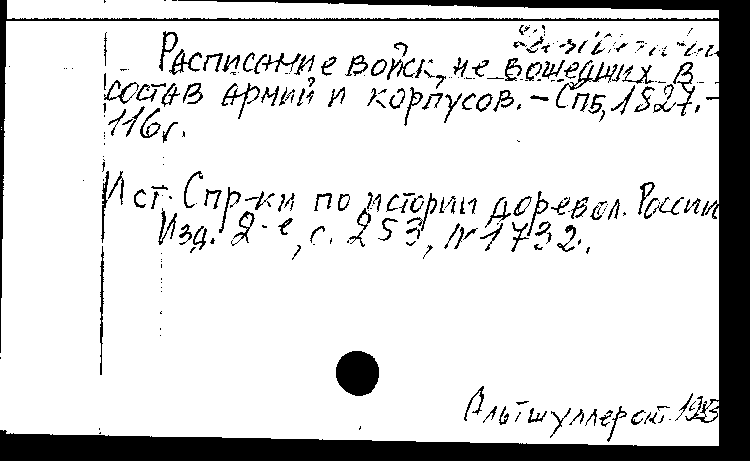 Desiderata
Расписание войск, не вошедших в
состав армий и корпусов. – Спб, 1827. –
116 с.
Ист. Спр-ки по истории доревол. России
Изд. 2-е, с. 253, № 1732.
Альтшуллер